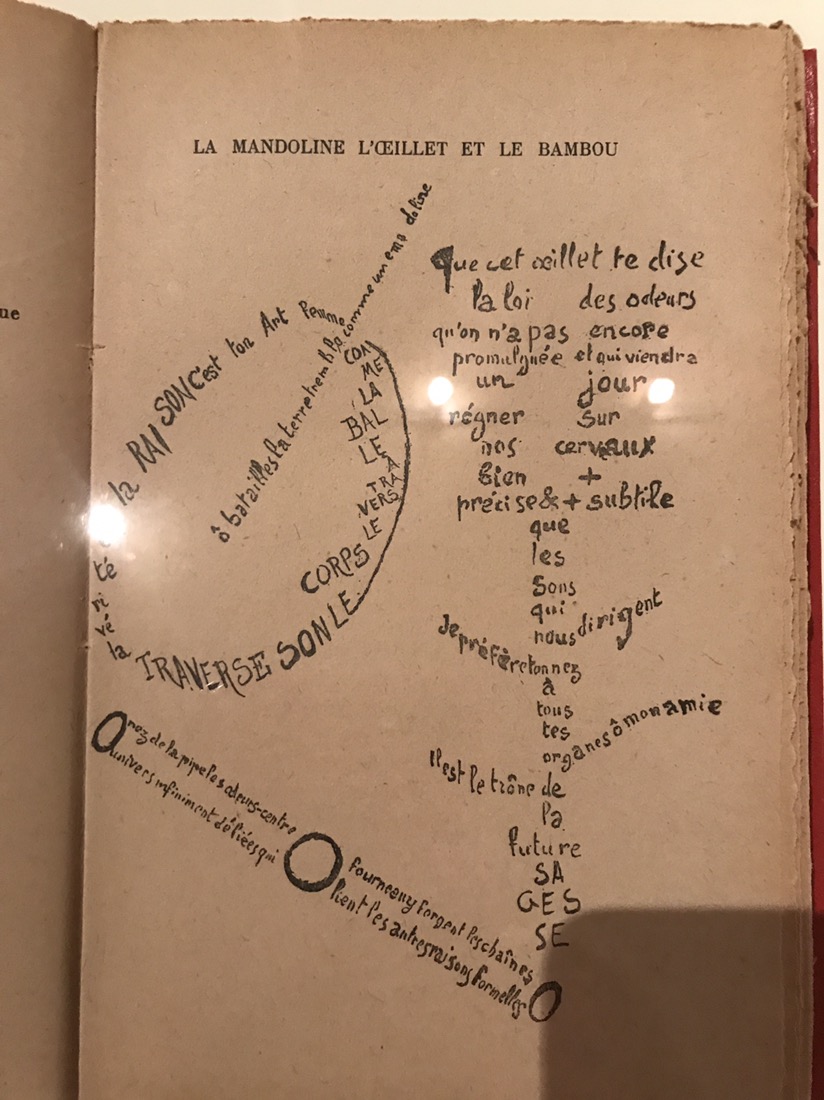 ue
LA MANDOLINE L'ŒILLET ET LE BAMBOU
ô batailles la terre tremble comme une mandoline
COMME LA BALLE À TRAVERS LE CORPS
LE SON TRAVERSE
la vérité
la RAISON c'est ton Art Femme
Que cet œillet te dise
la loi des odeurs
qu'on n'a pas encore
promulguée et qui viendra
un jour
régner sur
nos cerveaux
bien +
précise & + subtile
que
les
sons
qui
nous dirigent
Je préfère ton nez
à
tous
tes
organes ô mon amie
Il est le trône de
la
future
SA
GES
SE
O nez de la pipe les odeurs-centre
O fourneau y forgent les chaînes
univers infiniment déliées qui
lient les autres raisons formelles O